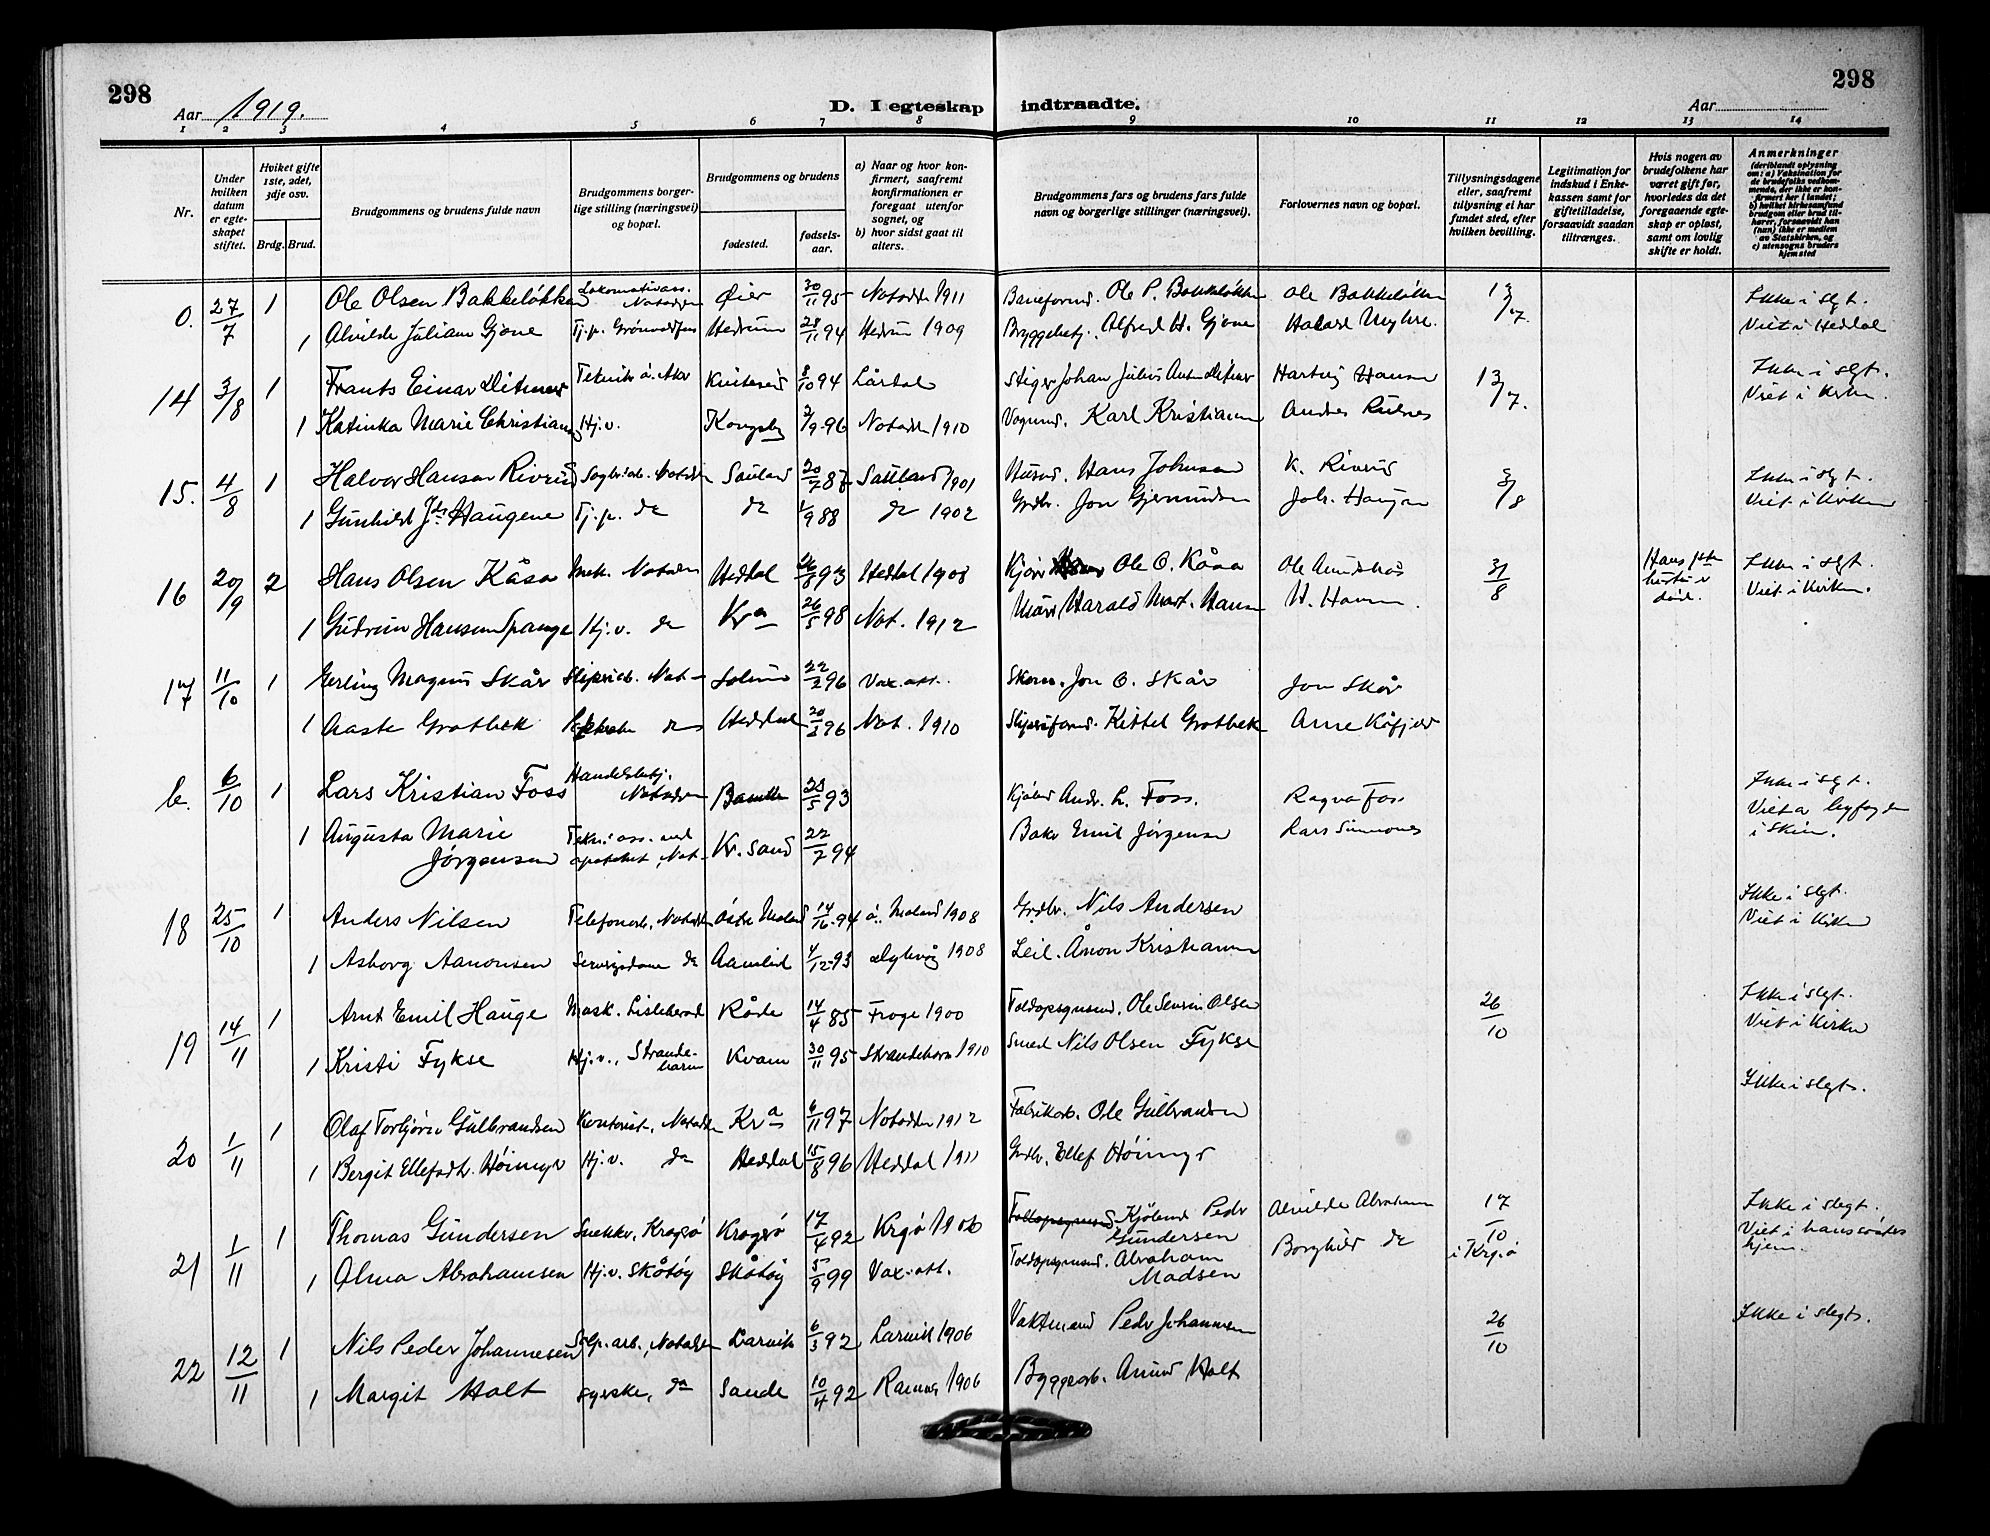 298
298
Aar 1919.
D. I egteskap indtraadte.
Aar
1 2 3 4 5 6 7 8 9 10 11 12 13 14
Nr.
Under hvilken datum er egteskapet stiftet.
Hviket gifte 1ste, 2det, 3dje osv.
Brdg. Brud.
Brudgommens og brudens fulde navn
Brudgommens borgerlige stilling (næringsvei) og bopæl.
Brudgommens og brudens
fødested.
fødselsaar.
a) Naar og hvor konfirmert, saafremt konfirmationen er foregaat utenfor sognet, og
b) hvor sidst gaat til alters.
Brudgommens fars og brudens fars fulde navn og borgerlige stillinger (næringsvei).
Forlovernes navn og bopæl.
Tillysningsdagene eller, saafremt tillysning ei har fundet sted, efter hvilken bevilling.
Legitimation for indskud i Enkekassen samt for giftetilladelse, forsaavidt saadan tiltrænges.
Hvis nogen av brudefolkene har været gift før, hvorledes da det foregaaende egteskap er opløst, samt om lovlig skifte er holdt.
Anmerkninger (deriblandt oplysning om: a) Vaksination for de brudefolks vedkommende, der ikke er konfirmert her i landet; b) hvilket kirkesamfund brudgom eller brud tilhører, forsaavidt han (hun) ikke er medlem av Statskirken, og c) utensogns bruders hjemsted
0. 27/7 1 Ole Olsen Bakkeløkken Lokomotivass. Notodden Øier 30/11 95 Notodden 1911 Baneformd. Ole P. Bakkeløkken Ole Bakkeløkken 13/7 Ikke i slgt.
1 Alvilde Juliane Gjone Tj.p. Hedrum 28/11 94 Hedrum 1909 Byggebetj. Alfred H. Gjone Viet i Heddal
14 3/8 1 Frants Einar Ditmer Kviteseid 8/10 94 Lårdal Stiger Johan Julius Ant. Ditmer Hartvig Hansen 13/7. Ikke i slgt.
1 Katinka Marie Christians Hj.v. Kongsbg 2/9 96 Notodden 1910 Vognmd. Karl Kristiansen Viet i kirken.
15. 4/8 1 Halvor Hansen Rivrud Sagbr.arb. Notodden Sauland 20/7 87 Sauland 1901 Husmd. Hans Johnsen K. Rivrud 3/8 Ikke i slgt.
1 Gunhild Jds Haugene Tj.p. do do 1/9 88 do 1902 Grdbr. Jon Gjermundsen Joh. Haugen Viet i kirken
16 20/9 2 Hans Olsen Kåsa Mek. Notodden Heddal 26/5 93 Heddal 1908 Kjører Ole O. Kåsa 31/8 Hans 1ste hustru er død. Ikke i slgt.
1 Gudrun Hansen Spange Hj.v. do Kra 26/5 98 Not. 1912 Murer Harald Mart. Hansen H. Hansen. Viet i kirken.
17 11/10 1 Gerling Magnus Skår Sliperiarb. Not- Solum 22/2 96 Vax.att. Skom. Jon O. Skår Jon Skår
1 Aaste Grotbæk do Heddal 20/2 96 Not. 1910 Sliperiformd. Kittel Grotbek Arne Kåfjeld
b. 6/10 1 Lars Kristian Foss Handelsbetj. Notodden Bamble 23/5 93 Kjøbmd Andr. L. Foss. Ragna Foss Ikke i slgt.
1 Augusta Marie Jørgensen ved apoteket, Not- Kr.sand 22/7 94 Baker Emil Jørgensen Lars Simones Viet a byfogden i Skien.
18 25/10 1 Anders Nilsen Telefonarb. Notodden Østre Moland 14/16 94 Ø. Moland 1908 Grdbr. Nils Andersen Ikke i slgt.
1 Asborg Aanonsen Serveringsdame do Aamlid 4/12 93 Dybvåg 1908 Leil. Ånon Kristiansen Viet i kirken
19 14/11 1 Arnt Emil Hauge Mask. Lisleherad Råde 14/4 85 Froge 1900 Toldopsynsmd. Ole Severin Olsen 26/10 Ikke i slegt.
1 Kristi Fykse Hj.v., Strandebarm Kvam 30/11 95 Strandebarm 1910 Smed Nils Olsen Fykse Viet i kirken
20 1/11 1 Olaf Torbjørn Gulbrandsen Kontorist, Notodden Kra 6/11 97 Notodden 1912 Fabrikarb. Ole Gulbrandsen Ikke i slegt.
1 Bergit Ellefsdtr. Høimyr Hj.v. do Heddal 15/8 96 Heddal 1911 Grdbr. Ellef Høimyr
21 1/11 1 Thomas Gundersen Snekker, Kragerø Kragerø 17/4 92 Krgø 1906 Toldopsynsmd Kjølmd Peder Gundersen Alvilde Abraham 17/10 i Krgø Ikke i slegt.
1 Olma Abrahamsen Hj.v. Skåtøy Skåtøy 5/9 99 Vax.att. Toldopsynsmd. Abraham Madsen Borghild do Viet i hjem.
22 12/11 1 Nils Peder Johannesen Salp.arb., Notodden Larvik 6/3 92 Larvik 1906 Vaktmand Peder Johannesen 26/10 Ikke i slegt.
1 Margit Holt syerske, do Sande 10/4 92 Ramnes 1906 Byggearb. Amund Holt